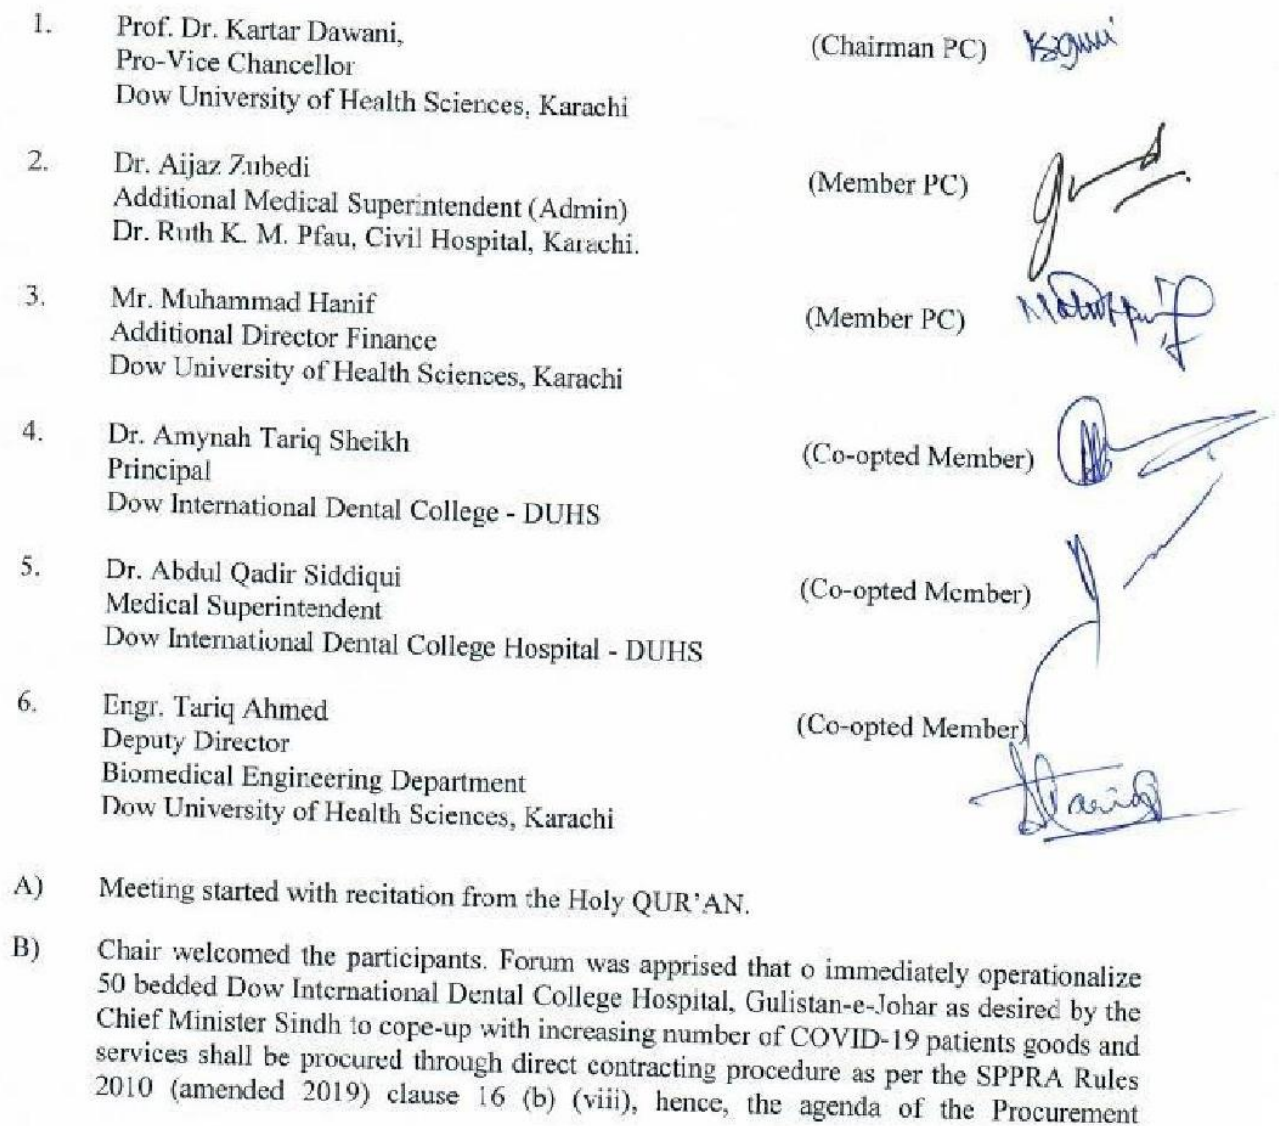 1. Prof. Dr. Kartar Dawani, (Chairman PC)
Pro-Vice Chancellor
Dow University of Health Sciences, Karachi
2. Dr. Aijaz Zubedi (Member PC)
Additional Medical Superintendent (Admin)
Dr. Ruth K. M. Pfau, Civil Hospital, Karachi.
3. Mr. Muhammad Hanif (Member PC)
Additional Director Finance
Dow University of Health Sciences, Karachi
4. Dr. Amynah Tariq Sheikh (Co-opted Member)
Principal
Dow International Dental College - DUHS
5. Dr. Abdul Qadir Siddiqui (Co-opted Member)
Medical Superintendent
Dow International Dental College Hospital - DUHS
6. Engr. Tariq Ahmed (Co-opted Member)
Deputy Director
Biomedical Engineering Department
Dow University of Health Sciences, Karachi
A) Meeting started with recitation from the Holy QUR'AN.
B) Chair welcomed the participants. Forum was apprised that o immediately operationalize
50 bedded Dow International Dental College Hospital, Gulistan-e-Johar as desired by the
Chief Minister Sindh to cope-up with increasing number of COVID-19 patients goods and
services shall be procured through direct contracting procedure as per the SPPRA Rules
2010 (amended 2019) clause 16 (b) (viii), hence, the agenda of the Procurement